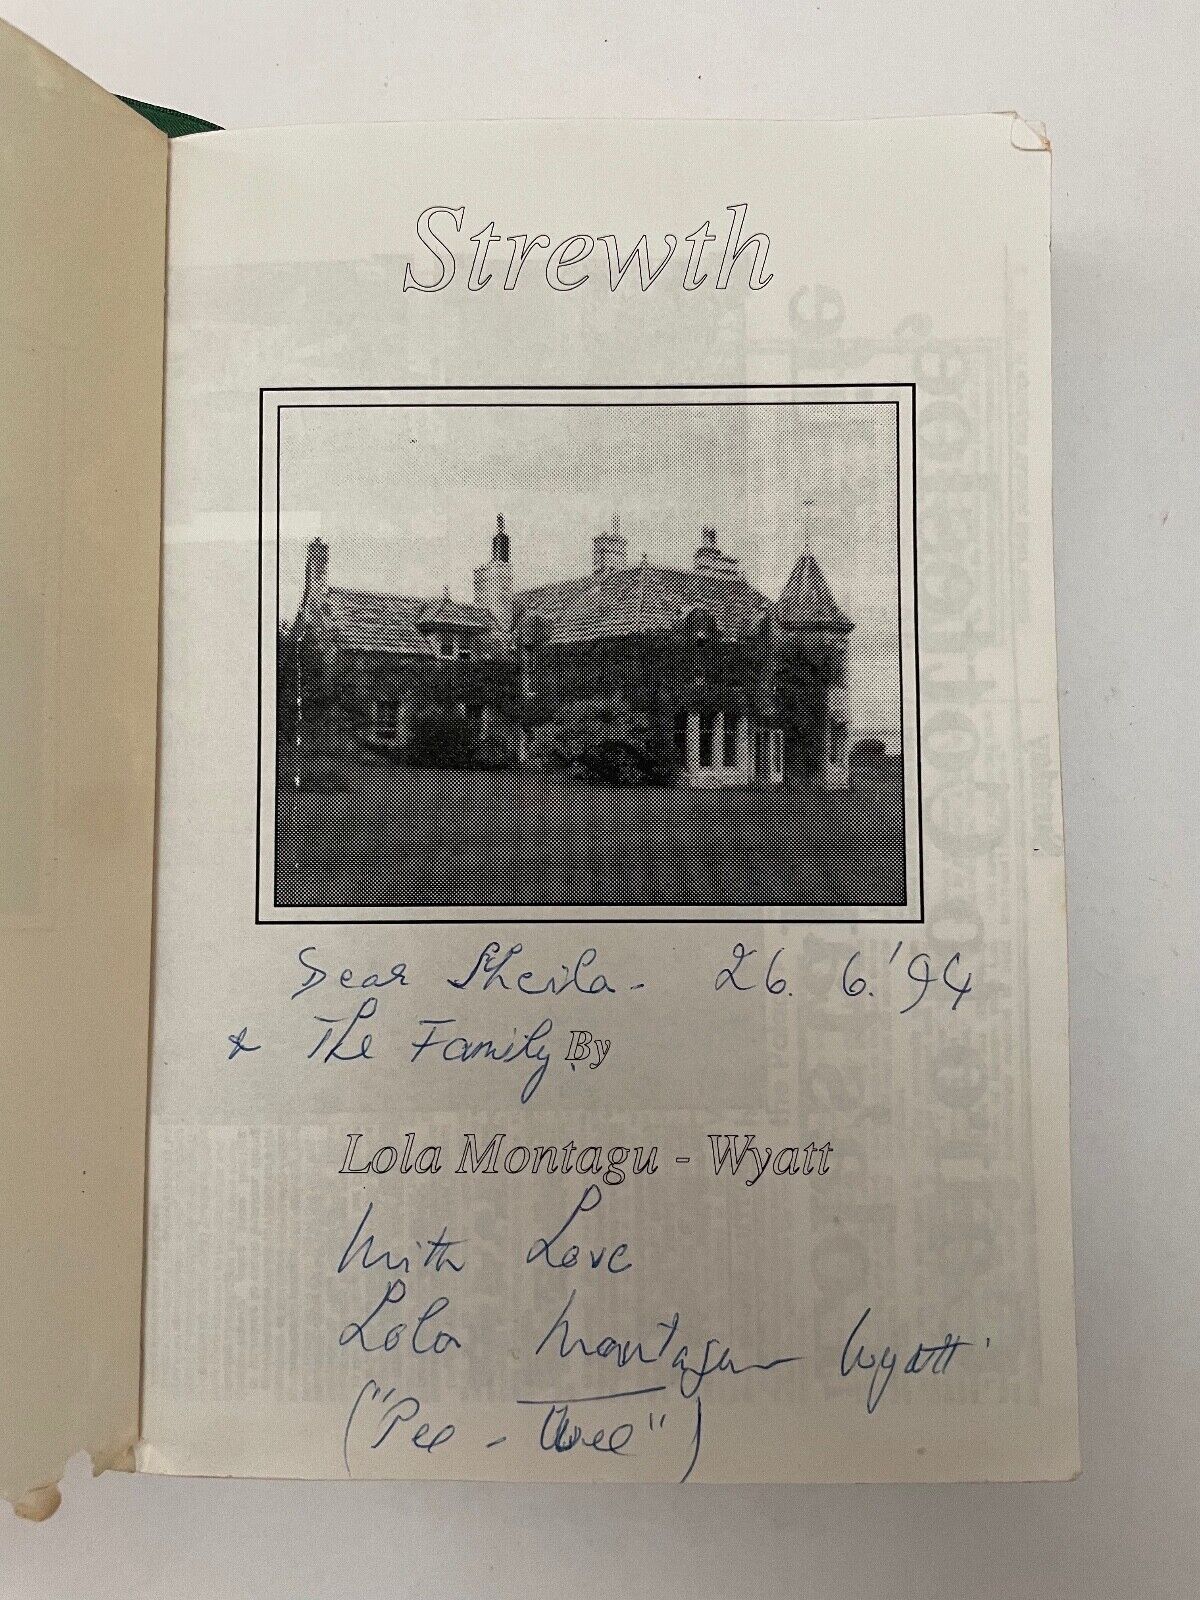 Strewth
Dear Sheila - 26. 6.'94
& The Family By
Lola Montagu - Wyatt
With Love
Lola Montagu - Wyatt
("Pee - Wee")